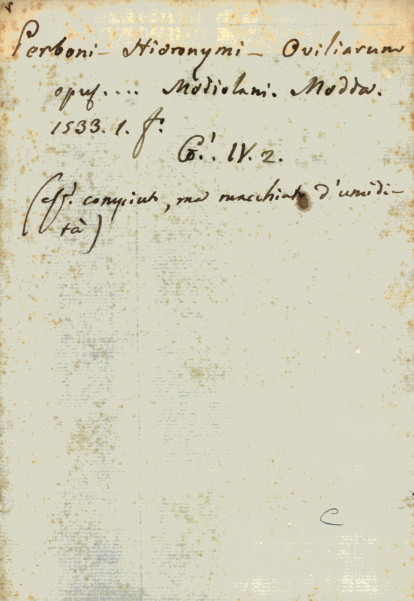 Perboni - Hieronymi - Oviliarum
opus.... Mediolani. Modda.
1533. 1. f.º
G.! IV. 2.
(es. compiuto, ma macchiato d'umidi-
tà)
C